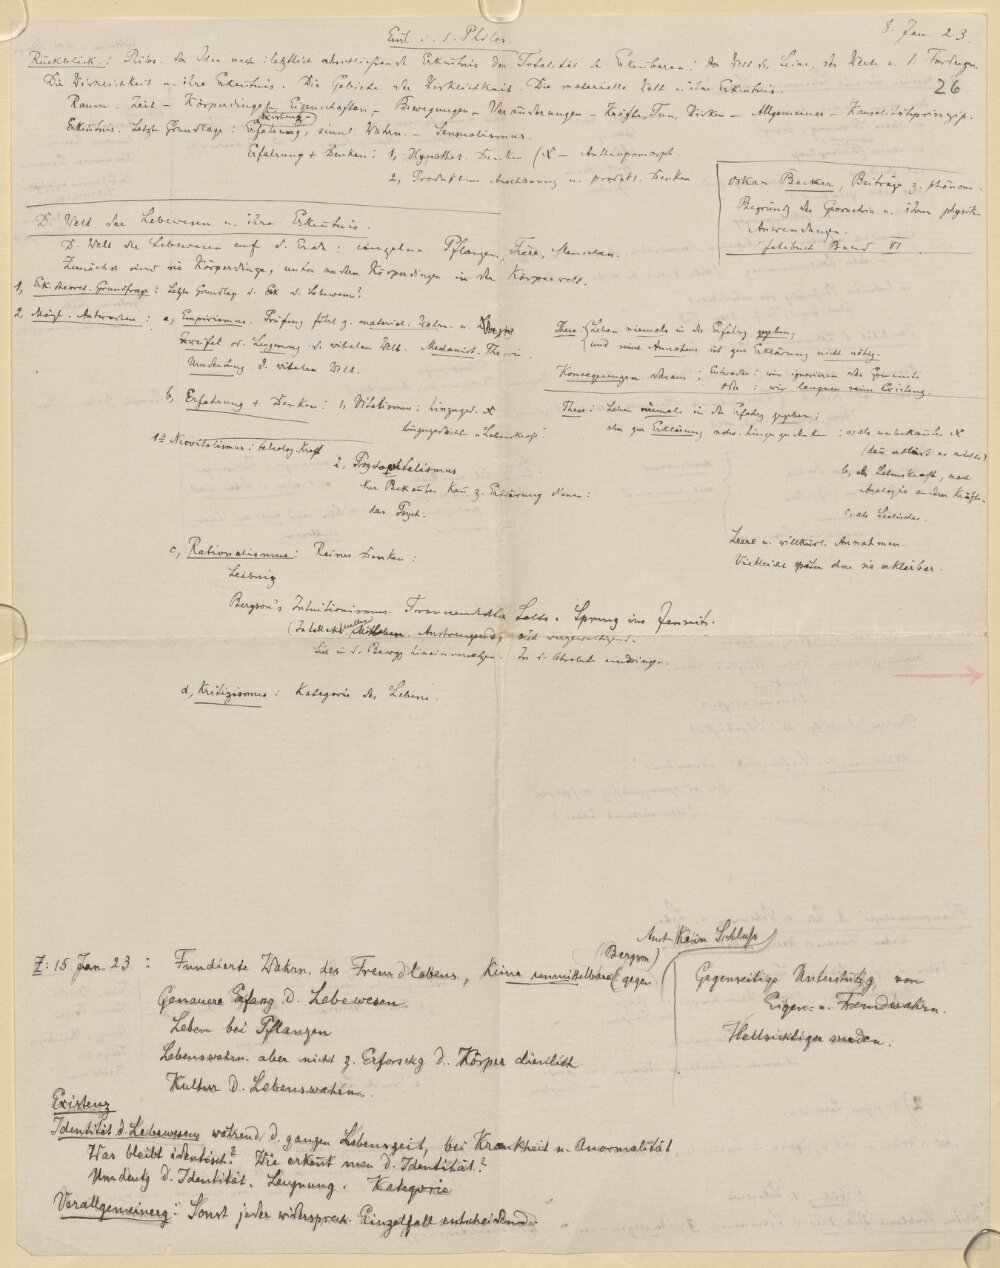 Einl. i. d. Philos.
8 Jan. 23.
26
Rückblick: Philos. der Idee nach: letztlich abschließende Erkenntnis der Totalität des Erkennbaren: der Welt des Seins, der Werte u. d. Fordergen
Die Wirklichkeit u. ihre Erkenntnis. Die Gebiete der Wirklichkeit. Die materielle Welt u. ihre Erkenntnis.
Raum - Zeit - Körperdinge - Eigenschaften - Bewegungen - Veränderungen - Kräfte, Tun, Wirken - Allgemeines - Kausalitätsprinzip.
Existenz
Erkentnis. Letzte Grundlage: Erfahrung, sinnl. Wahrn. - Sensualismus.
Erfahrung + Denken: 1, Hypothet. Denken (X - Anthropomorph.
2, Produktive Anschauung u. produkt. Denken
Oskar Becker, Beiträge z. phänom.
Begründg der Geometrie u. ihrer physik.
Anwendungen.
Jahrbuch Band VI
D. Welt der Lebewesen u. ihre Erkentnis.
D. Welt der Lebewesen auf d. Erde: einzelne Pflanzen, Tiere, Menschen.
Zunächst sind sie Körperdinge, unter andern Körperdingen in der Körperwelt.
1, Erk.theoret. Grundfrage: Letzte Grundlage d. Erk d. Lebewesen?
2, Mögl. Antworten: a, Empirismus. Prüfung führt z. material. Wahrn. u.
Zweifel od. Leugnung d. vitalen Welt. Mechanist. Theorie.
Umdeutung d. vitalen Welt.
These: Leben niemals in der Erfahrg gegeben;
und seine Annahme ist zur Erklärung nicht nötig.
Konsequenzen daraus: Entweder: wir ignorieren das Gemeinte
oder: wir leugnen seine Existenz.
b, Erfahrung + Denken: 1, Vitalismus: hinzuged. X
hinzugedacht "Lebenskraft".
These: Leben niemals in der Erfahrg gegeben;
aber zur Erklärung notw. hinzuzudenken: a, als unbekantes X
(dan erklärt es nichts)
b, als Lebenskraft, nach
Analogie andern Kräften.
c, als Seelisches.
1a Neovitalismus: teleolog. Kraft
2, Psychovitalismus
Nur Bekantes kan z. Erklärung dienen:
das Psych.
Leere u. willkürl. Annahmen.
Vielleicht später ohne sie erklärbar.
c, Rationalismus: Reines Denken:
Leibniz
Bergson's Intuitionismus. Transcendenter Salto: Sprung ins Jenseits.
(Intellektuelles Mitleben. Anstrengend, sich vergewaltigend.
Sich in d. Bewgg hineinversetzen. In d. Absolute eindringen.
d, Kritizismus: Kategorie des Lebens.
Z: 15 Jan. 23: Fundierte Wahrn. des Fremdlebens, keine unmittelbare (gegen
(Bergson)
Auch Kein Schluß
Gegenseitige Unterstützg von
Eigen- u. Fremdwahrn.
Hellsichtiger werden.
Genauere Erfang d. Lebewesen
Leben bei Pflanzen
Lebenswahrn. aber nicht z. Erforschg d. Körper dienlich
Kultur d. Lebenswahrn.
Existenz
Identität d. Lebewesens während d. ganzen Lebenszeit, bei Krankheit u. Anormalität
Was bleibt identisch? Wie erkent man d. Identität?
Umdeutg d. Identität. Leugnung. Kategorie
Verallgemeinerg: Sonst jeder widersprech. Einzelfall entscheidend.